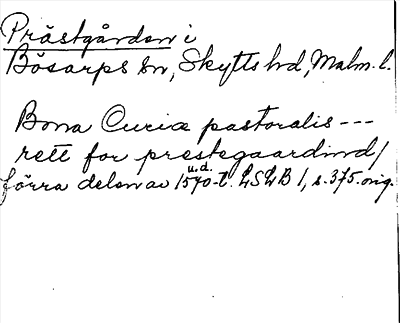 Prästgården i
Bösarps sn, Skytts hd, Malm. l.
Bona Curiæ pastoralis ---
rett for prestegaardind/
u.d.
förra delen av 1570-t. LSLB 1, s. 375. orig.